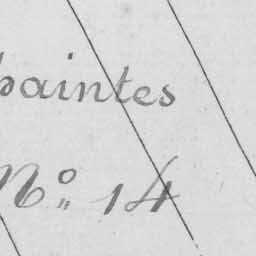 paintes
Nº 14